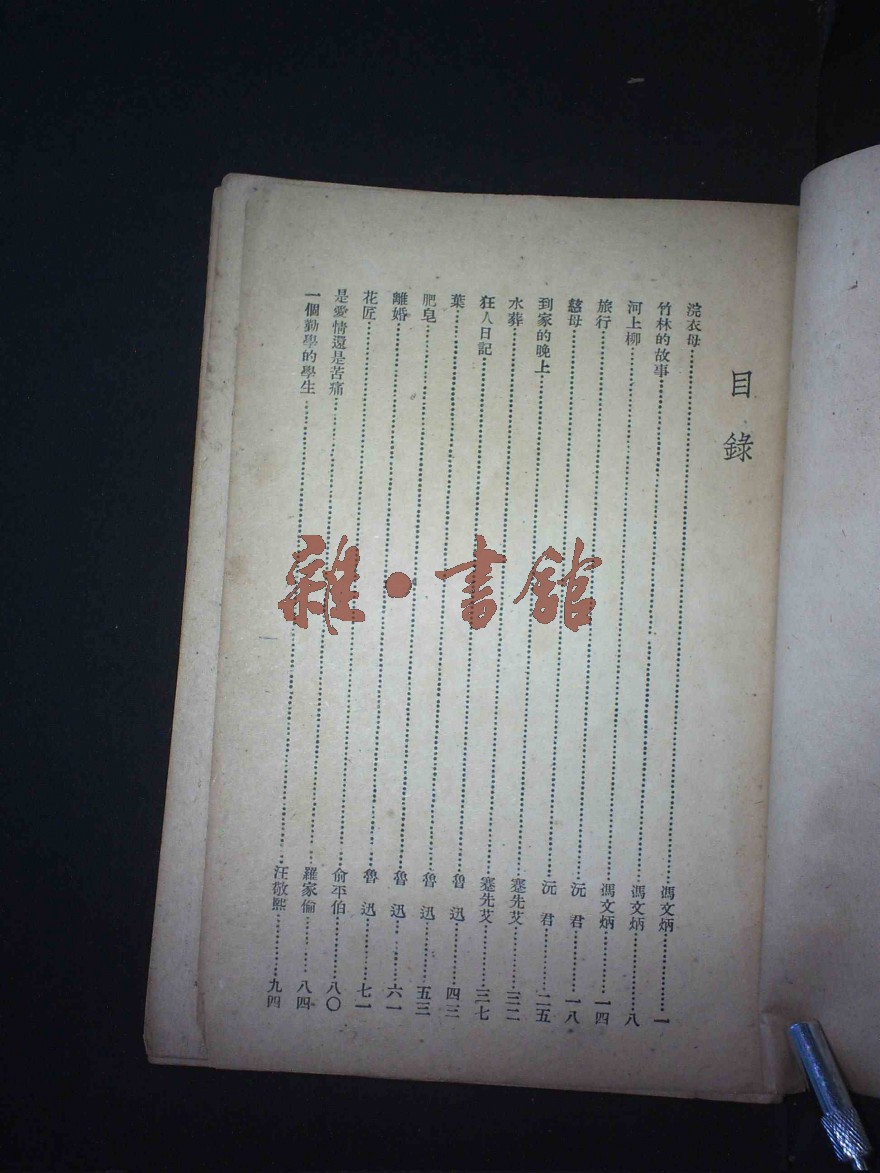 目錄
浣衣母……馮文炳……一
竹林的故事……馮文炳……八
河上柳……馮文炳……一四
旅行……沅君……一八
慈母……沅君……二五
到家的晚上……蹇先艾……三二
水葬……蹇先艾……三七
狂人日記……魯迅……四三
藥……魯迅……五三
肥皂……魯迅……六一
離婚……魯迅……七一
花匠……俞平伯……八〇
是愛情還是苦痛……羅家倫……八四
一個勤學的學生……汪敬熙……九四
雜·書館